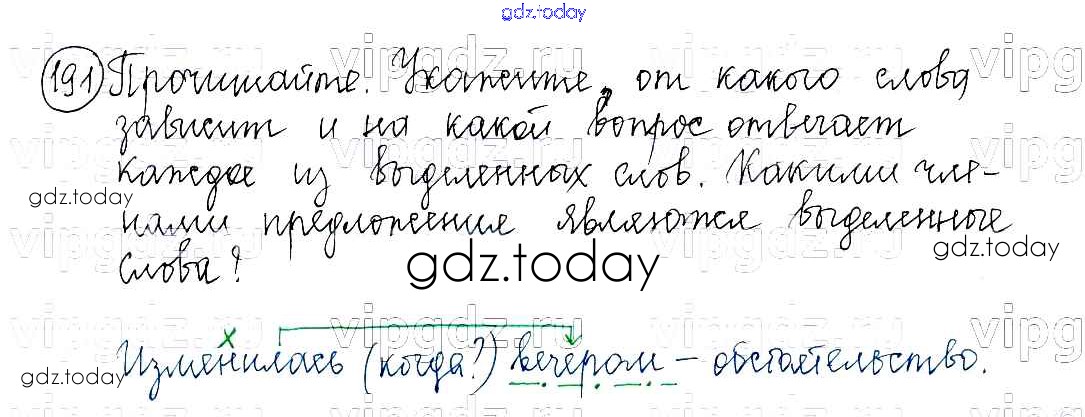 gdz.today
191 Прочитайте. Укажите, от какого слова
зависит и на какой вопрос отвечает
каждое из выделенных слов. Какими чле-
gdz.today
нами предложения являются выделенные
gdz.today
слова?
gdz.today
х
Изменилась (когда?) вечером – обстоятельство.
gdz.today